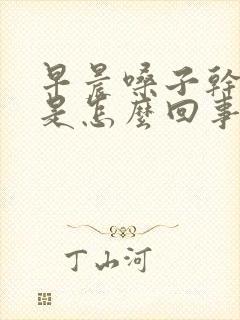 早晨嗓子幹
是怎麼回事
丁山河